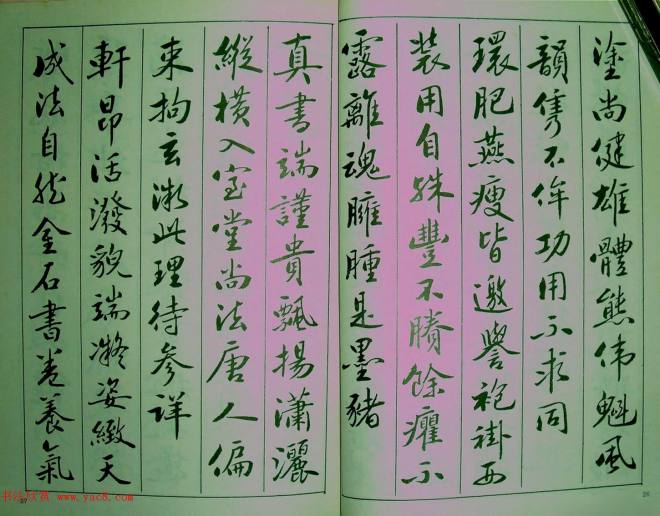 塗尚健雄體態伟魁風
韻隽不侔功用不求同
環肥燕瘦皆邀譽袍褂西
装用自殊豐不賸餘癯不
露離魂臃腫是墨豬
真書端謹貴飄揚瀟灑
縱橫入室堂尚法唐人偏
束拘玄微此理待参詳
軒昂活潑貌端凝姿緻天
成法自然金石書卷養氣
书法欣赏 www.yac8.com
27
26